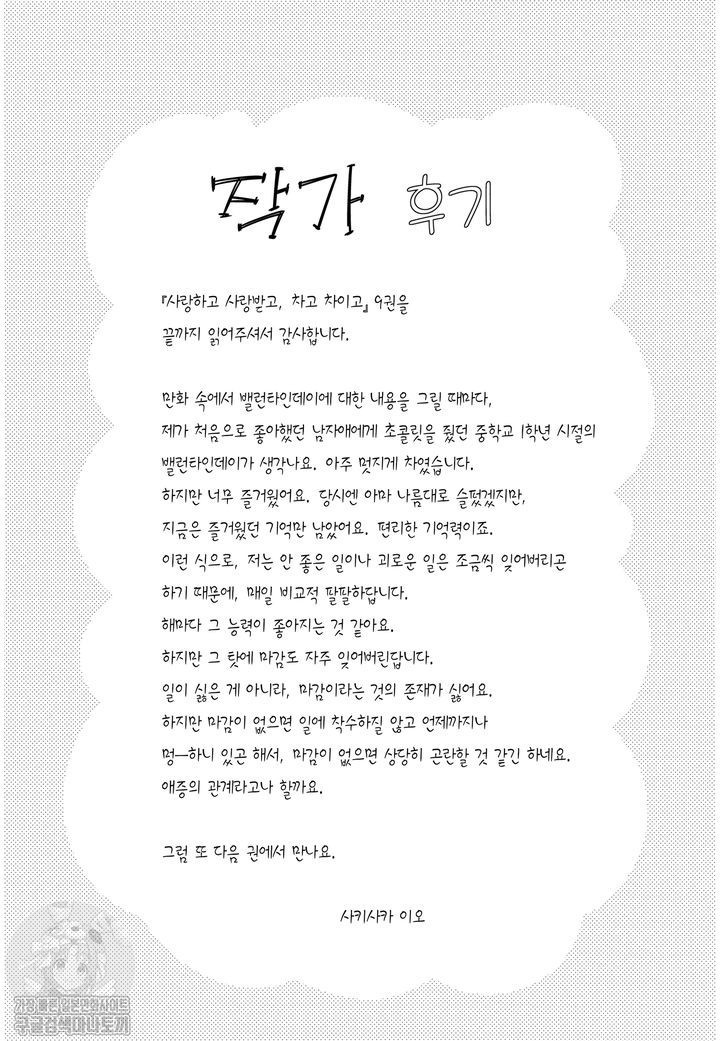 작가 후기
『사랑하고 사랑받고, 차고 차이고』 9권을
끝까지 읽어주셔서 감사합니다.
만화 속에서 밸런타인데이에 대한 내용을 그릴 때마다,
제가 처음으로 좋아했던 남자애에게 초콜릿을 줬던 중학교 1학년 시절의
밸런타인데이가 생각나요. 아주 멋지게 차였습니다.
하지만 너무 즐거웠어요. 당시엔 아마 나름대로 슬펐겠지만,
지금은 즐거웠던 기억만 남았어요. 편리한 기억력이죠.
이런 식으로, 저는 안 좋은 일이나 괴로운 일은 조금씩 잊어버리곤
하기 때문에, 매일 비교적 팔팔하답니다.
해마다 그 능력이 좋아지는 것 같아요.
하지만 그 탓에 마감도 자주 잊어버린답니다.
일이 싫은 게 아니라, 마감이라는 것의 존재가 싫어요.
하지만 마감이 없으면 일에 착수하질 않고 언제까지나
멍—하니 있곤 해서, 마감이 없으면 상당히 곤란할 것 같긴 하네요.
애증의 관계라고나 할까요.
그럼 또 다음 권에서 만나요.
사키사카 이오
가장 빠른 일본만화사이트
구글검색마나토끼